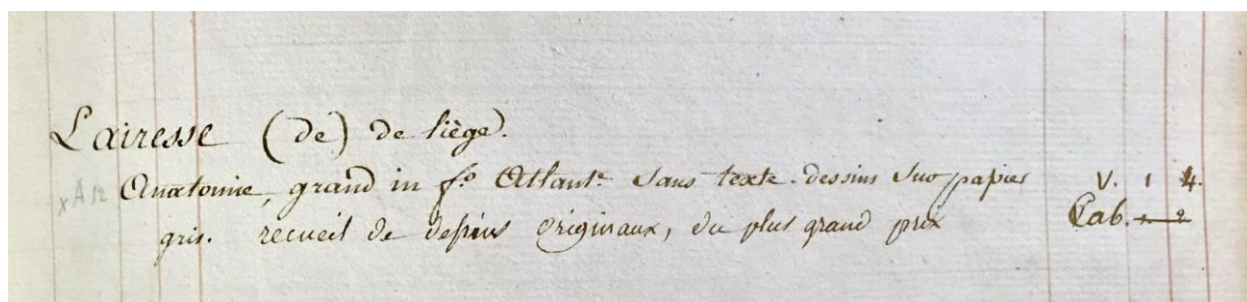 Lairesse (de) de liège.
x A 12 Anatomie, grand in f.º Atlant.e sans texte. dessins sur papier V. 1 4.
gris. recueil de dessins originaux, du plus grand prix Cab. 2